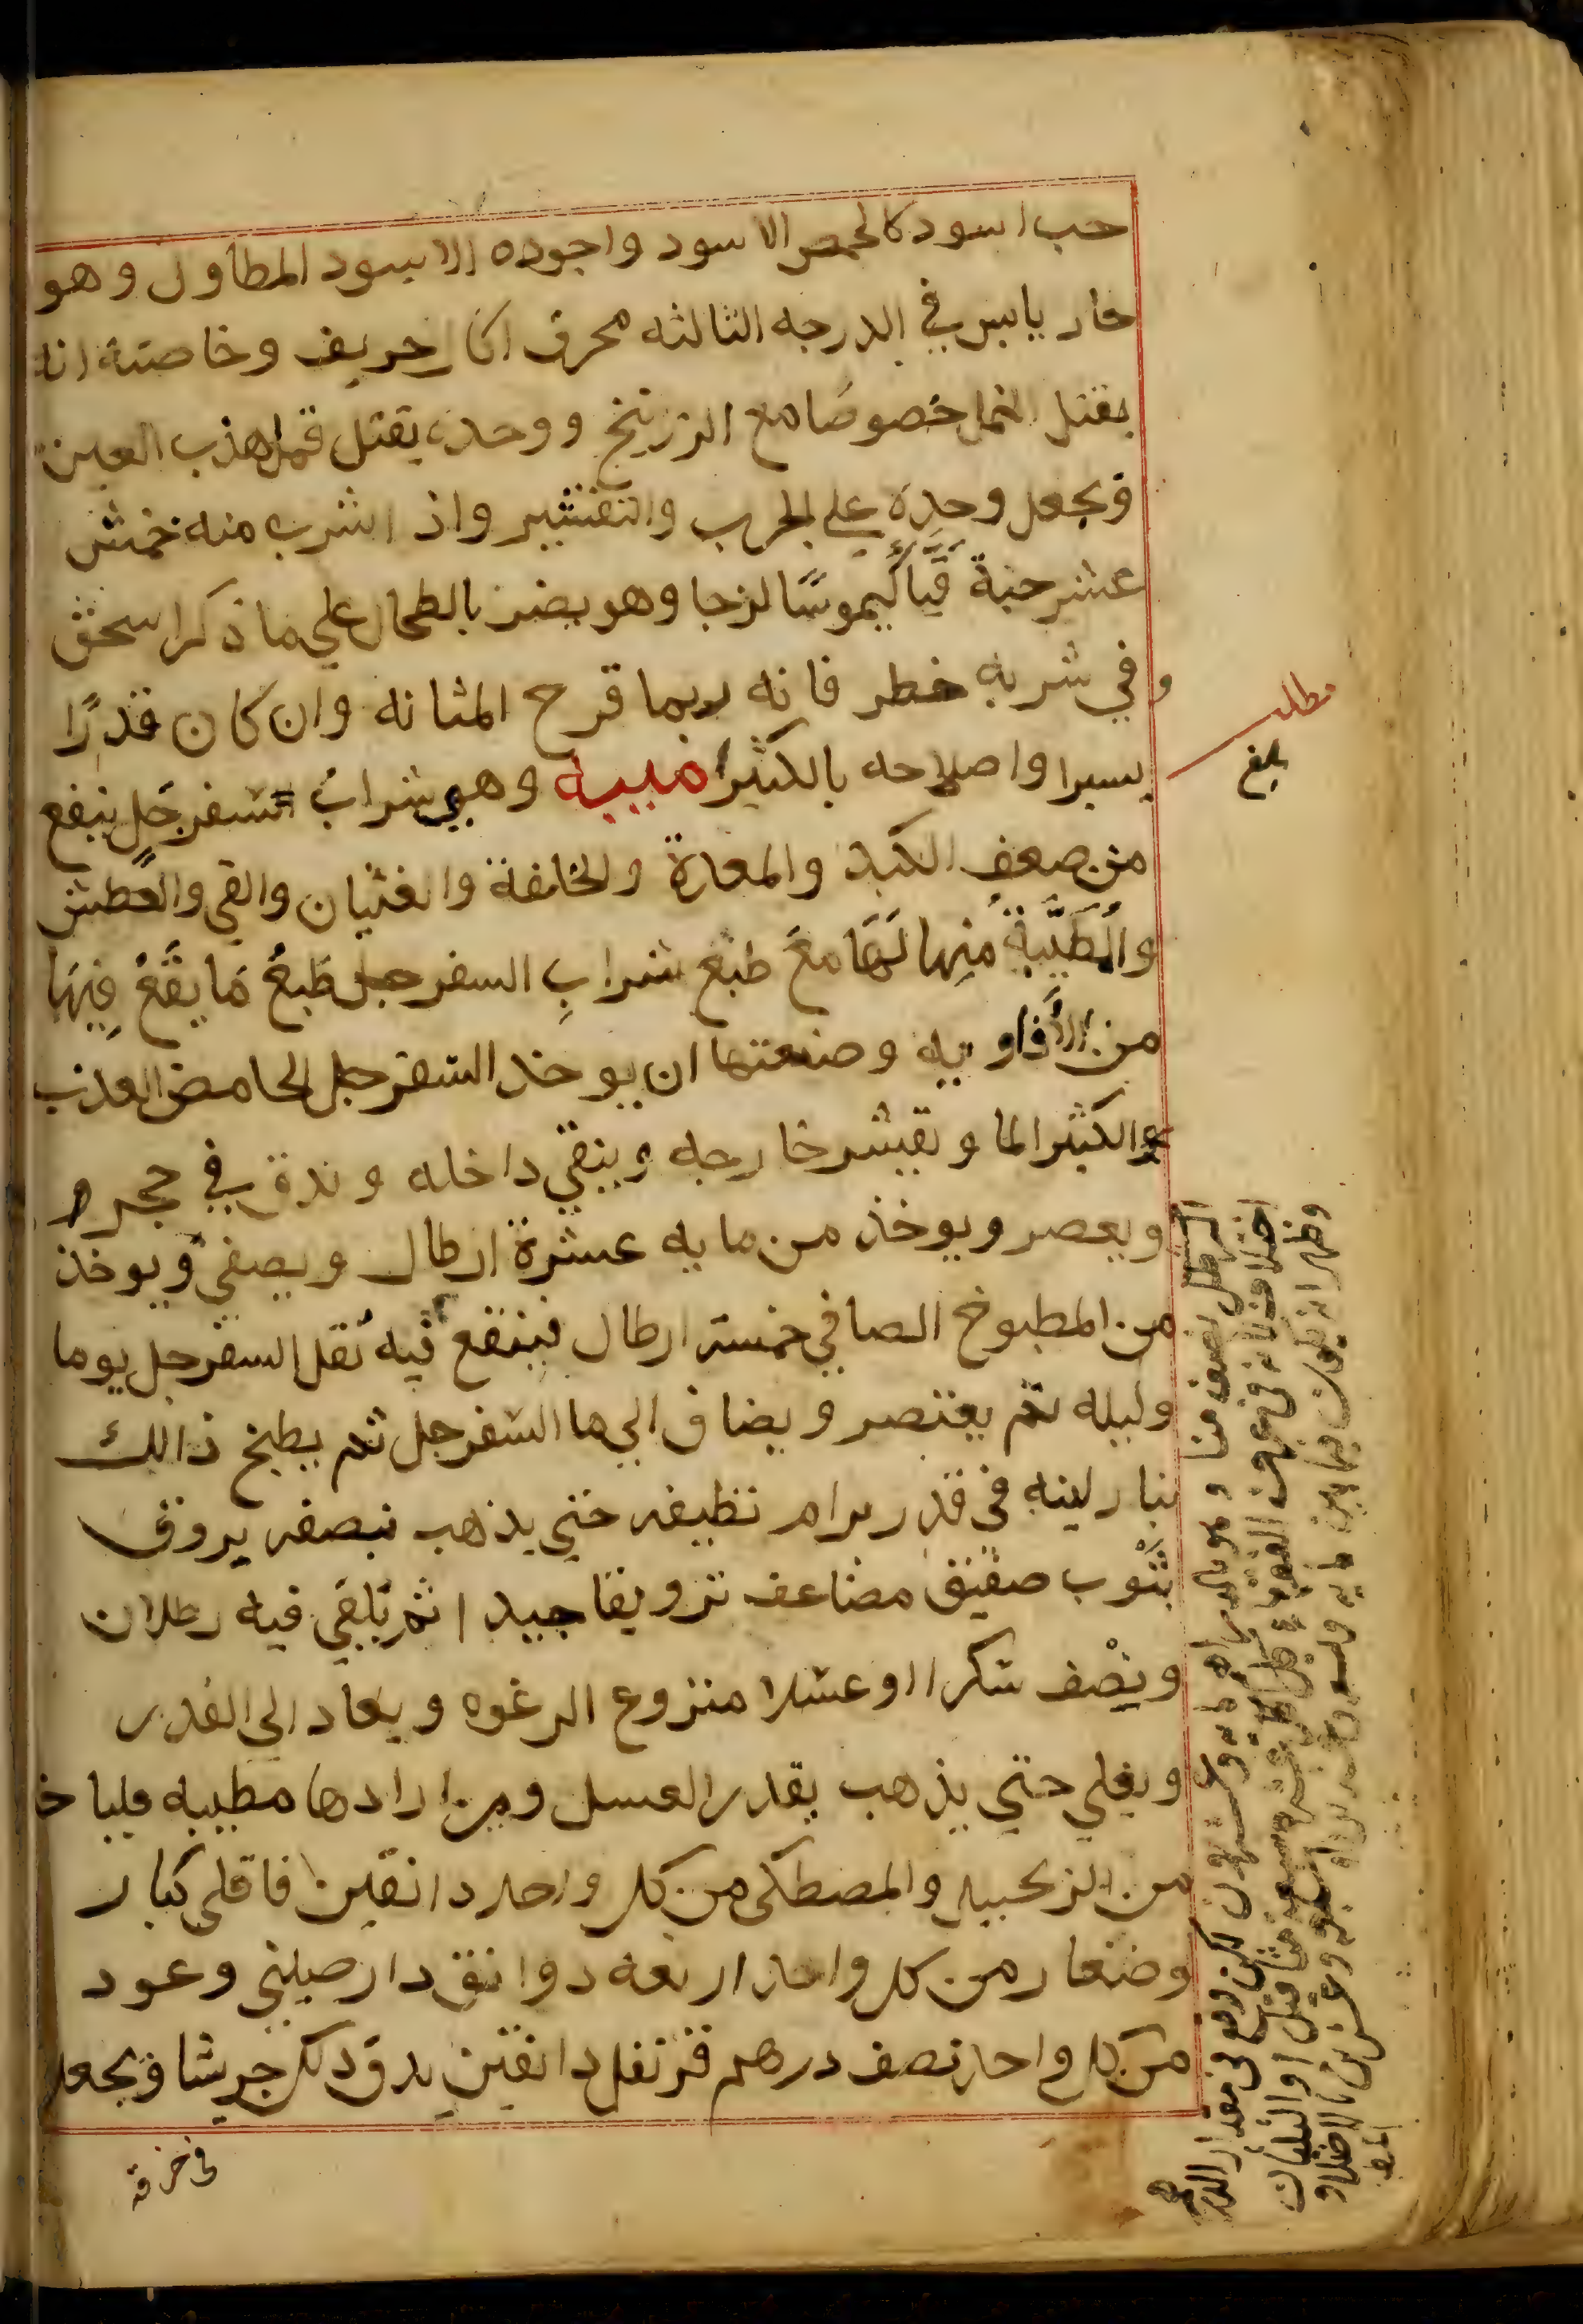 حب اسود كالحمص الاسود واجوده الاسود المطاول وهو
حار يابس في الدرجه الثالثه محرق اكال حريف وخاصته انه
يقتل القمل خصوصًا مع الزرنيخ ووحده يقتل قمل هذب العين
ويجعل وحده علي الجرب والتقشير واذ اشرب منه خمش
عشر حبة قيَّأ كيموسًا لزجا وهو يضر بالطحال علي ما ذكر اسحق
وفي شربه خطر فانه ربما قرح المثانه وان كان قدرًا
يسيرا واصلاحه بالكثيرا ميبه وهي شراب سفرجل ينفع
من ضعف الكبد والمعدة والخلفة والغثيان والقي والعطش
والمُطَيَّبة منها لَهَا معَ طبع شرابِ السفرجل طَبعُ مَا يقَعُ فِيهَا
من الأفاويه وصنعتها ان يوخد السفرجل الحامض العذب
والكثير الما ويقشر خارجه وينقي داخله ويدق في حجر
ويعصر ويوخذ من مايه عشرة ارطال ويصفي ويوخذ
من المطبوخ الصافي خمسة ارطال فينقع فيه ثقل السفرجل يوما
وليله ثم يعتصر ويضاف الي ماء السفرجل ثم يطبخ ذالك
بنار لينه في قدر برام نظيفه حتي يذهب نصفه يروق
بثَوب صفيق مضاعف ترويقا جيدا ثم يلقي فيه رطلان
ونِصْف سكرا او عسلا منزوع الرغوه ويعاد الي القدر
ويغلي حتي يذهب بقدر العسل ومن ارادها مطيبه فلياخذ
من الزنجبيل والمصطكي من كل واحد دانقين قاقلي كبار
وصغار من كل واحد اربعه دوانق دارصيني وعود
من كل واحد نصف درهم قرنفل دانقين يدق ذلك جريشا ويجعل
في خرقة
مطلب
بلغ